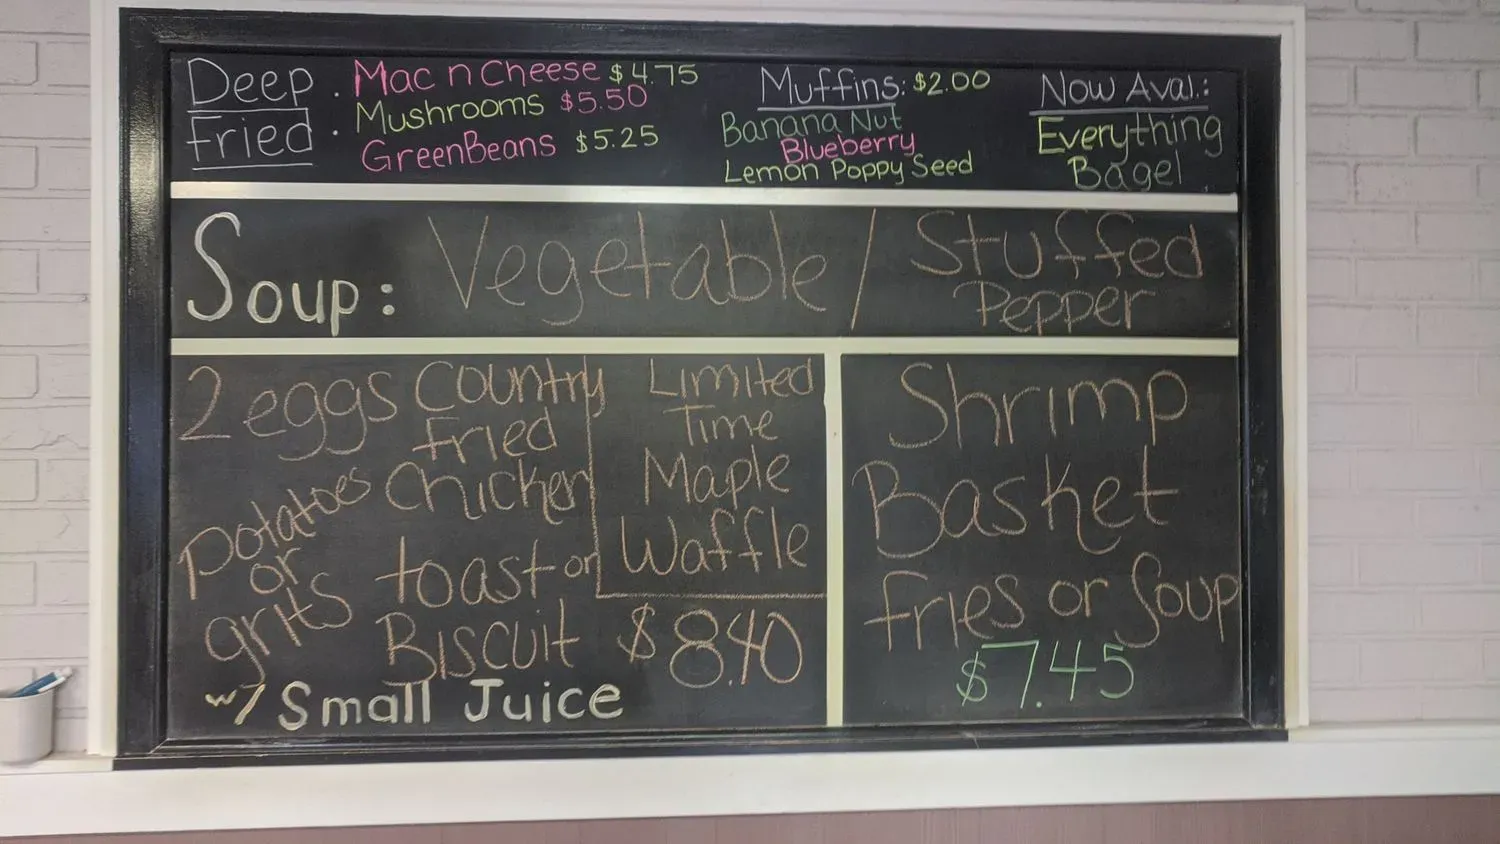 Deep Fried
: Mac n Cheese $4.75
Mushrooms $5.50
GreenBeans $5.25
Muffins: $2.00
Banana Nut
Blueberry
Lemon Poppy Seed
Now Aval.:
Everything
Bagel
Soup: Vegetable / Stuffed
Pepper
2 eggs Country
Fried
Potatoes Chicken
or
grits
toast or
Biscuit $8.40
w/ Small Juice
Limited
Time
Maple
Waffle
Shrimp
Basket
Fries or Soup
$7.45